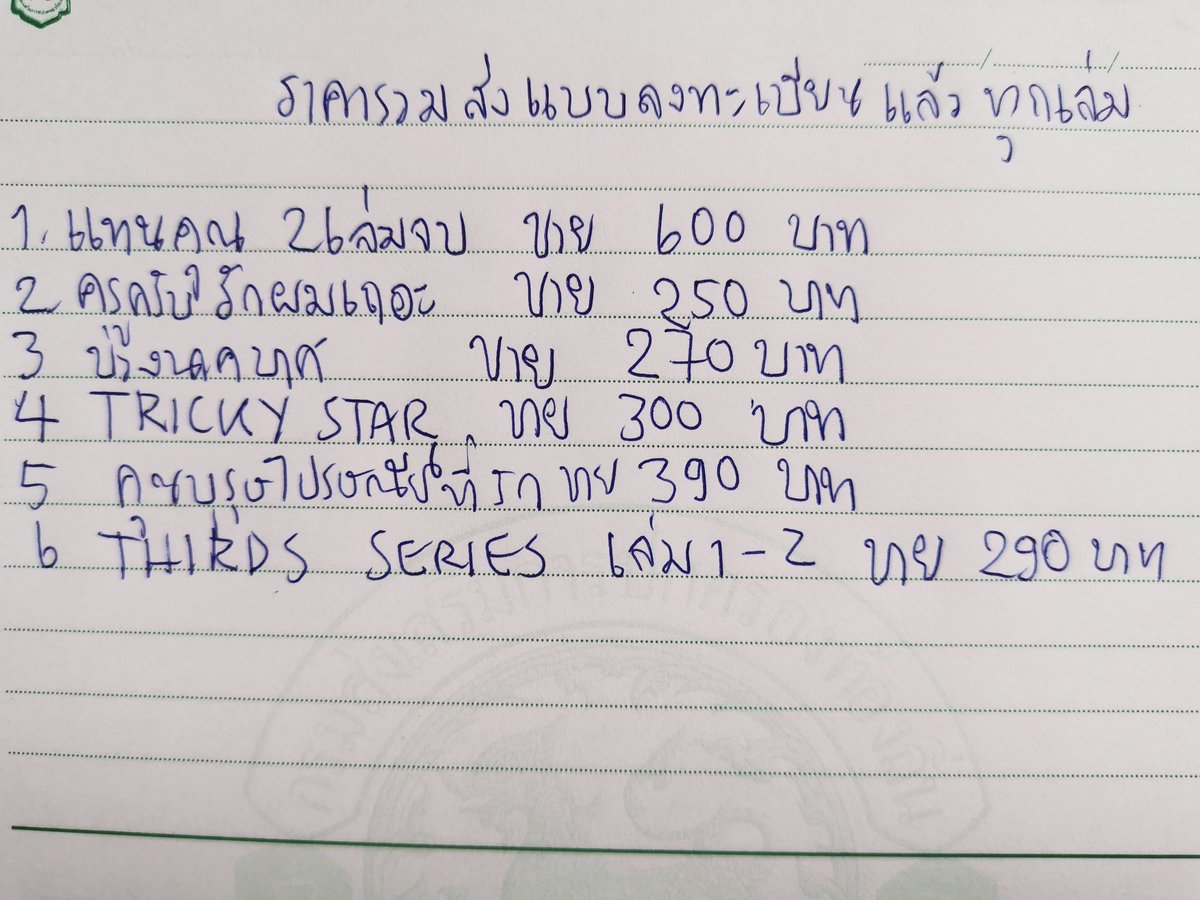 ราคารวมส่งแบบลงทะเบียนแล้วทุกเล่ม
1. แทนคุณ 2เล่มจบ ขาย 600 บาท
2 ครูครับรักผมเถอะ ขาย 250 บาท
3 ขาย 270 บาท
4 TRICKY STAR ขาย 300 บาท
5 คุณบุรุษไปรษณีย์ที่รัก ขาย 390 บาท
6 THIRDS SERIES เล่ม 1-2 ขาย 290 บาท